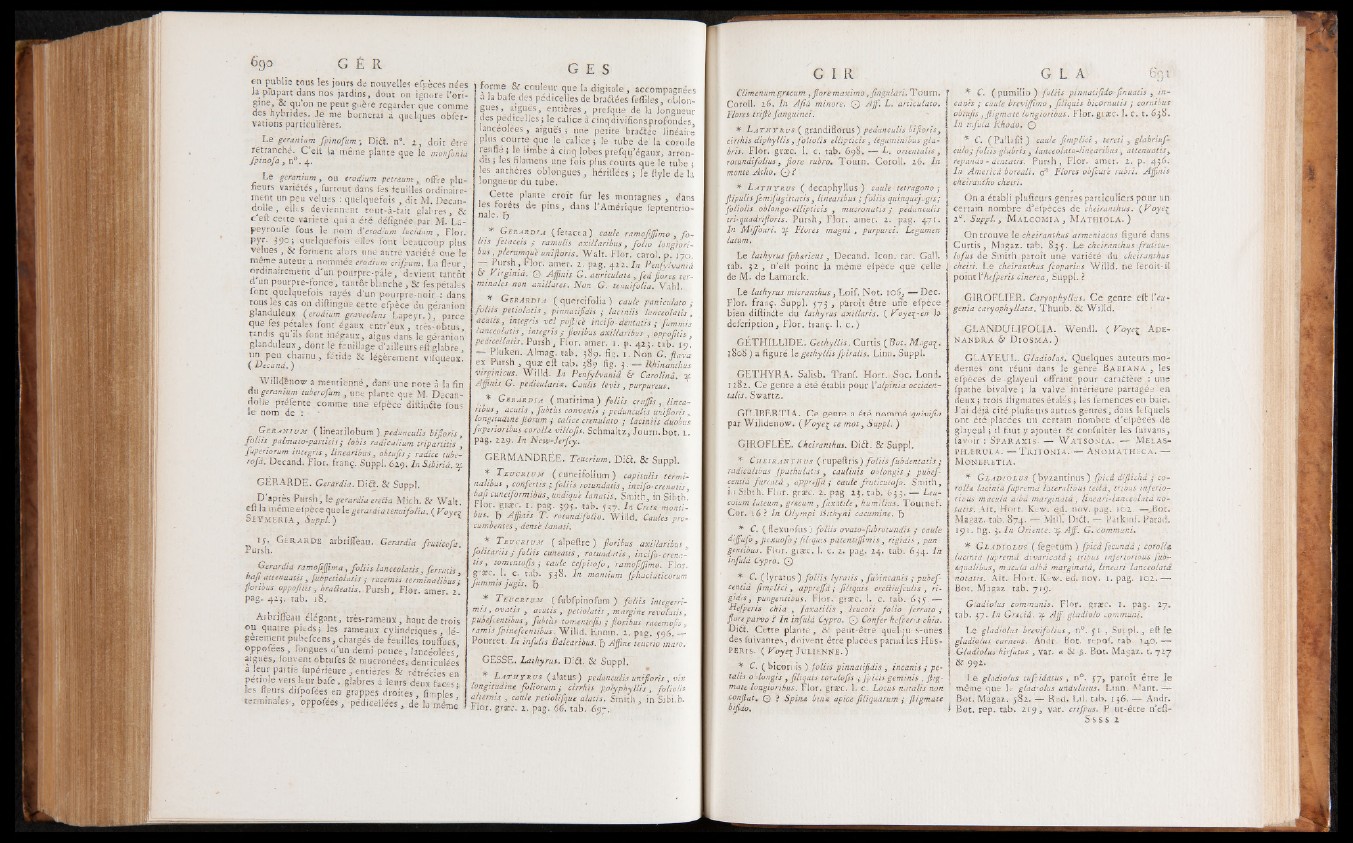 690 G É R
en publie tous les jours de nouvelles espèces nées
la plupart dans nos jardins, dont on ignore l'ori-
gine, & qu'on ne peut guère regarder que comme
des hybrides. Je me bornerai à quelques obser-
vations particulières.
Le geranium spinosum; Dict. n°. 2, doit être
retranché. C'est la même plante que le monsonia
spinosa, n°. 4.
Le geranium, ou erodium petreum, offre plu-
sieurs variétés, surtout dans ses feuilles ordinaire-
ment un peu velues : quelquefois, dit M. Decan-
dolle, elles deviennent tout-à-fait glabres, &
c'est cette variété qui a été désignée par M. La-
peyrouse sous le nom d'erodium lucidum, Flor.
pyr. 390; quelquefois elles sont beaucoup plus
velues, & forment alors une autre variété que le
même auteur a nommée erodium crispum. La fleur,
ordinairement d'un pourpre-pâle, devient tantôt
d'un pourpre-foncé, tantôt blanche, & ses pétales
sont quelquefois rayés d'un pourpre-noir : dans
tous les cas on distingue cette espèce du géranion
glanduleux (erodium graveolens Lapeyr.), parce
que ses pétales sont égaux entr'eux, très-obtus,
tandis qu'ils sont inégaux, aigus dans le géranion
glanduleux, dont le feuillage d'ailleurs est glabre,
un peu charnu, fétide & légèrement visqueux.
(Decand.)
Willdenow a mentionné, dans une note à la fin
du geranium tuberosum, une plante que M. Decan-
dolle présente comme une espèce distincte sous
le nom de :
GERANIUM (linearilobum) pedunculis bifloris,
foliis palmato-partitis; lobis radicalium tripartitis,
superiorum integris, linearibus, obtusis; radice tube-
rosâ. Decand. Flor. franç. Suppl. 629. In Sibiriâ. ♃
GÉRARDE. Gerardia. Dict. & Suppl.
D'après Pursh, le gerardia erecta Mich. & Walt.
est la même espèce que le gerardia tenuifolia. (Voyez
SEYMERIA, Suppl.)
15. GÉRARDE arbrisseau. Gerardia fruticosa.
Pursh.
Gerardia ramosissima, foliis lanceolatis, serratis,
basi attenuatis, subpetiolatis; racemis terminalibus;
floribus oppositis, bracteatis. Pursh, Flor. amer. 2.
pag. 423. tab. 18.
Arbrisseau élégant, très-rameux, haut de trois
ou quatre pieds; les rameaux cylindriques, lé-
gèrement pubescens, chargés de feuilles touffues,
opposées, longues d'un demi-pouce, lancéolées,
aiguës, souvent obtuses & mucronées, denticulées
à leur partie supérieure, entières & rétrécies en
pétiole vers leur base, glabres à leurs deux faces;
les fleurs disposées en grappes droites, simples,
terminales, opposées, pédicellées, de la même
G E S
forme & couleur que la digitale, accompagnées
à la base des pédicelles de bractées sessiles, oblon-
gues, aiguës, entières, presque de la longueur
des pédicelles; le calice à cinq divisions profondes,
lancéolées, aiguës; une petite bractée linéaire
plus courte que le calice; le tube de la corolle
renflé; le limbe à cinq lobes presqu'égaux, arron-
dis; les filamens une fois plus courts que le tube;
les anthères oblongues, hérissées; le style de la
longueur du tube.
Cette plante croît sur les montagnes, dans
les forêts de pins, dans l'Amérique septentrio-
nale. ♄
* GERARDIA (setacea) caule ramosissimo, fo-
liis setaceis; ramulis axillaribus, folio longiori-
bus, plerumquè unifloris. Walt. Flor. carol. p. 170.
— Pursh, Flor. amer. 2. pag. 422. In Pensylvaniâ
& Virginiâ. ☉ Affinis G. auriculata, sed flores ter-
minales non axillares. Non G. tenuifolia. Vahl.
* GERARDIA (quercifolia) caule paniculato;
foliis petiolatis, pinnatifidis; laciniis lanceolatis,
acutis, integris vel posticè inciso-dentatis; summis
lanceolatis, integris; floribus axillaribus, oppositis,
pedicellatis. Pursh, Flor. amer. 1. p. 423. tab. 19.
— Pluken. Almag. tab. 389. fig. 1. Non G. flava
ex Pursh, quæ est tab. 389 fig. 3. — Rhinanthus
virginicus. Willd. In Pensylvaniâ & Carolinâ. ♃
Affinis G. pedicularia. Caulis levis, purpureus.
* GERARDIA (maritima) foliis crassis, linea-
ribus, acutis, subtùs convexis; pedunculis unifloris,
longitudine florum; calice crenulato; laciniis duobus
superioribus corollæ villosis. Schmaltz, Journ. bot. 1.
pag. 229. In New-Jersey.
GERMANDRÉE. Teucrium. Dict. & Suppl.
* TEUCRIUM (cuneifolium) capitulis termi-
nalibus, confertis; foliis rotundatis, inciso-crenatis,
basi cuneiformibus, undiquè lanatis. Smith, in Sibth.
Flor. græc. 1. pag. 395. tab. 527. In Cretæ monti-
bus. ♄ Affinis T. rotundifolio. Willd. Caules pro-
cumbentes, densè lanati.
* TEUCRIUM (alpestre) floribus axillaribus,
solitariis; foliis cuneatis, rotundatis, inciso-crena-
tis, tomentosis; caule cespitoso, ramosissimo. Flor.
græc. l. c. tab. 538. In montium sphacioticorum
summis jugis. ♄
* TEUCRIUM (subspinosum) foliis integerri-
mis, ovatis, acutis, petiolatis, margine revolutis,
pubescentibus, subtùs tomentosis; floribus racemosis,
ramis spinescentibus. Willd. Enum. 2. pag. 596. —
Pourret. In insulis Balearibus. ♄ Affine teucrio maro.
GESSE. Lathyrus. Dict. & Suppl.
* LATHYRUS (alatus) pedunculis unifloris, vix
longitudine foliorum; cirrhis polyphyllis, foliolis
alternis, caule petiolisque alatis. Smith, in Sibth.
Flor. græc. 2. pag. 66. tab. 697.
G I R
Climenum græcum, flore maximo, singulari. Tourn.
Coroll. 26. In Asiâ minore. ☉ Aff. L. articulato.
Flores tristè sanguinei.
* LATHYRUS (grandiflorus) pedunculis bifloris,
cirrhis diphyllis, foliolis ellipticis, leguminibus gla-
bris. Flor. græc. l. c. tab. 698. — L. orientalis,
rotundifolius, flore rubro. Tourn. Coroll. 26. In
monte Atho. ☉?
* LATHYRUS (decaphyllus) caule tetragono;
stipulis semisagittatis, linearibus; foliis quinquejugis;
foliolis oblongo-ellipticis, mucronatis; pedunculis
tri-quadrifloris. Pursh, Flor. amer. 2. pag. 471.
In Missouri. ♃ Flores magni, purpurei. Legumen
latum.
Le lathyrus sphæricus, Decand. Icon. rar. Gall.
tab. 32, n'est point la même espèce que celle
de M. de Lamarck.
Le lathyrus micranthus, Loisl. Not. 106, — Dec.
Flor. franç. Suppl. 573, paroît être une espèce
bien distincte du lathyrus axillaris. (Voyez-en la
description, Flor. franç. l. c.)
GÉTHILLIDE. Gethyllis. Curtis (Bot. Magaz.
1808) a figuré le gethyllis spiralis. Linn. Suppl.
GETHYRA. Salisb. Tranf. Hort. Soc. Lond.
1282. Ce genre a été établi pour l'alpinia occiden-
talis. Swartz.
GILIBERTIA. Ce genre a été nommé quivisia
par Willdenow. (Voyez ce mot, Suppl.)
GIROFLÉE. Cheiranthus. Dict. & Suppl.
* CHEIRANTHUS (rupestris) foliis subdentatis;
radicalibus spathulatis, caulinis oblongis; pubes-
centiâ furcatâ, appressâ; caule fruticuloso. Smith,
in Sibth. Flor. græc. 2. pag. 23. tab. 633. — Leu-
coium luteum, græcum, saxatile, humilius. Tournef.
Cor. 16? In Olympi Bithyni cacumine. ♄
* C. (flexuosus) foliis ovato-subrotundis; caule
diffuso, flexuoso; siliquis patentissimis, rigidis, pun-
gentibus. Flor. græc. l. c. 2. pag. 24. tab. 634. In
insulâ Cypro. ☉
* C. (lyratus) foliis lyratis, subincanis; pubes-
centiâ simplici, appressâ; siliquis erectiusculis, ri-
gidis, pungentibus. Flor. græc. l. c. tab. 635 —
Hesperis chia, saxatilis, leucoii folio serrato;
flore parvo? In insulâ Cypro. ☉ Confer hesperis chia.
Dict. Cette plante, & peut-être quelqu's-unes
des suivantes, doivent être placées parmi les HES-
PERIS. (Voyez JULIENNE.)
* C. (bicornis) foliis pinnatifidis, incanis; pe-
talis oblongis; siliquis torulosis; apicis geminis, stig-
mate longioribus. Flor. græc. l. c. Locus natalis non
constat. ☉? Spinæ binæ apice siliquarum; stigmate
bifido.
G L A 691
* C. (pumilio) foliis pinnatifido-sinuatis, in-
canis; caule brevissimo, siliquis bicornutis; cornubus
obtusis, stigmate longioribus. Flor. græc. l. c. t. 638.
In insulâ Rhodo. ☉
* C. (Pallasii) caule simplici, tereti, glabrius-
culo; foliis glabris, lanceolato-linearibus, attenuatis,
repando-dentatis. Pursh, Flor. amer. 2. p. 436.
In Americâ boreali. ♂ Flores obscurè rubri. Affinis
cheirantho cheiri.
On a établi plusieurs genres particuliers pour un
certain nombre d'espèces de cheiranthus. (Voyez
2°. Suppl., MALCOMIA, MATHIOLA.)
On trouve le cheiranthus armeniacus figuré dans
Curtis, Magaz. tab. 835. Le cheiranthus fruticu-
losus de Smith paroît une variété du cheiranthus
cheiri. Le cheiranthus scoparius Willd. ne seroit-il
point l'hesperis cinerea, Suppl.?
GIROFLIER. Caryophyllus. Ce genre est l'eu-
genia caryophyllata. Thunb. & Willd.
GLANDULIFOLIA. Wendl. (Voyez ADE-
NANDRA & DIOSMA.)
GLAYEUL. Gladiolus. Quelques auteurs mo-
dernes ont réuni dans le genre BABIANA, les
espèces de glayeul offrant pour caractère : une
spathe bivalve; la valve intérieure partagée en
deux; trois stigmates étalés; les semences en baie.
J'ai déjà cité plusieurs autres genres, dans lesquels
ont été placées un certain nombre d'espèces de
glayeul; il faut y ajouter & consulter les suivans,
savoir : SPARAXIS. — WATSONIA. — MELAS-
PHERULA. — TRITONIA. — ANOMATHECA. —
MONERETIA.
* GLADIOLUS (byzantinus) spicâ distichâ; co-
rollæ laciniâ supremâ lateralibus tectâ, tribus inferio-
ribus maculâ albâ marginatâ, lineari-lanceolatâ no-
tatis. Ait. Hort. Kew. ed. nov. pag. 102 — Bot.
Magaz. tab. 874. — Mill. Dict. — Parkins. Parad.
191. fig. 3. In Oriente. ♃ Aff. G. communi.
* GLADIOLUS (segetum) spicâ secundâ; corollæ
laciniâ supremâ divaricatâ; tribus inferioribus sub-
æqualibus, maculâ albâ marginatâ, lineari lanceolatâ
notatis. Ait. Hort. Kew. ed. nov. 1. pag. 102. —
Bot. Magaz. tab. 719.
Gladiolus communis. Flor. græc. 1. pag. 27.
tab. 37. In Græciâ. ♃ Aff. gladiolo communi.
Le gladiolus brevifolius, n°. 51, Suppl., est le
gladiolus carneus. Andr. Bot. repos. tab. 240. —
Gladiolus hirsutus, var. α & β. Bot. Magaz. t. 727
& 992.
Le gladiolus cuspidatus, n°. 57, paroît être le
même que 1. gladiolus undulatus. Linn. Mant. —
Bot. Magaz. 582. — Red. Lil. tab. 136. — Andr.
Bot. rep. tab. 219, var. crispus. Peut-être n'est-
S s s s 2